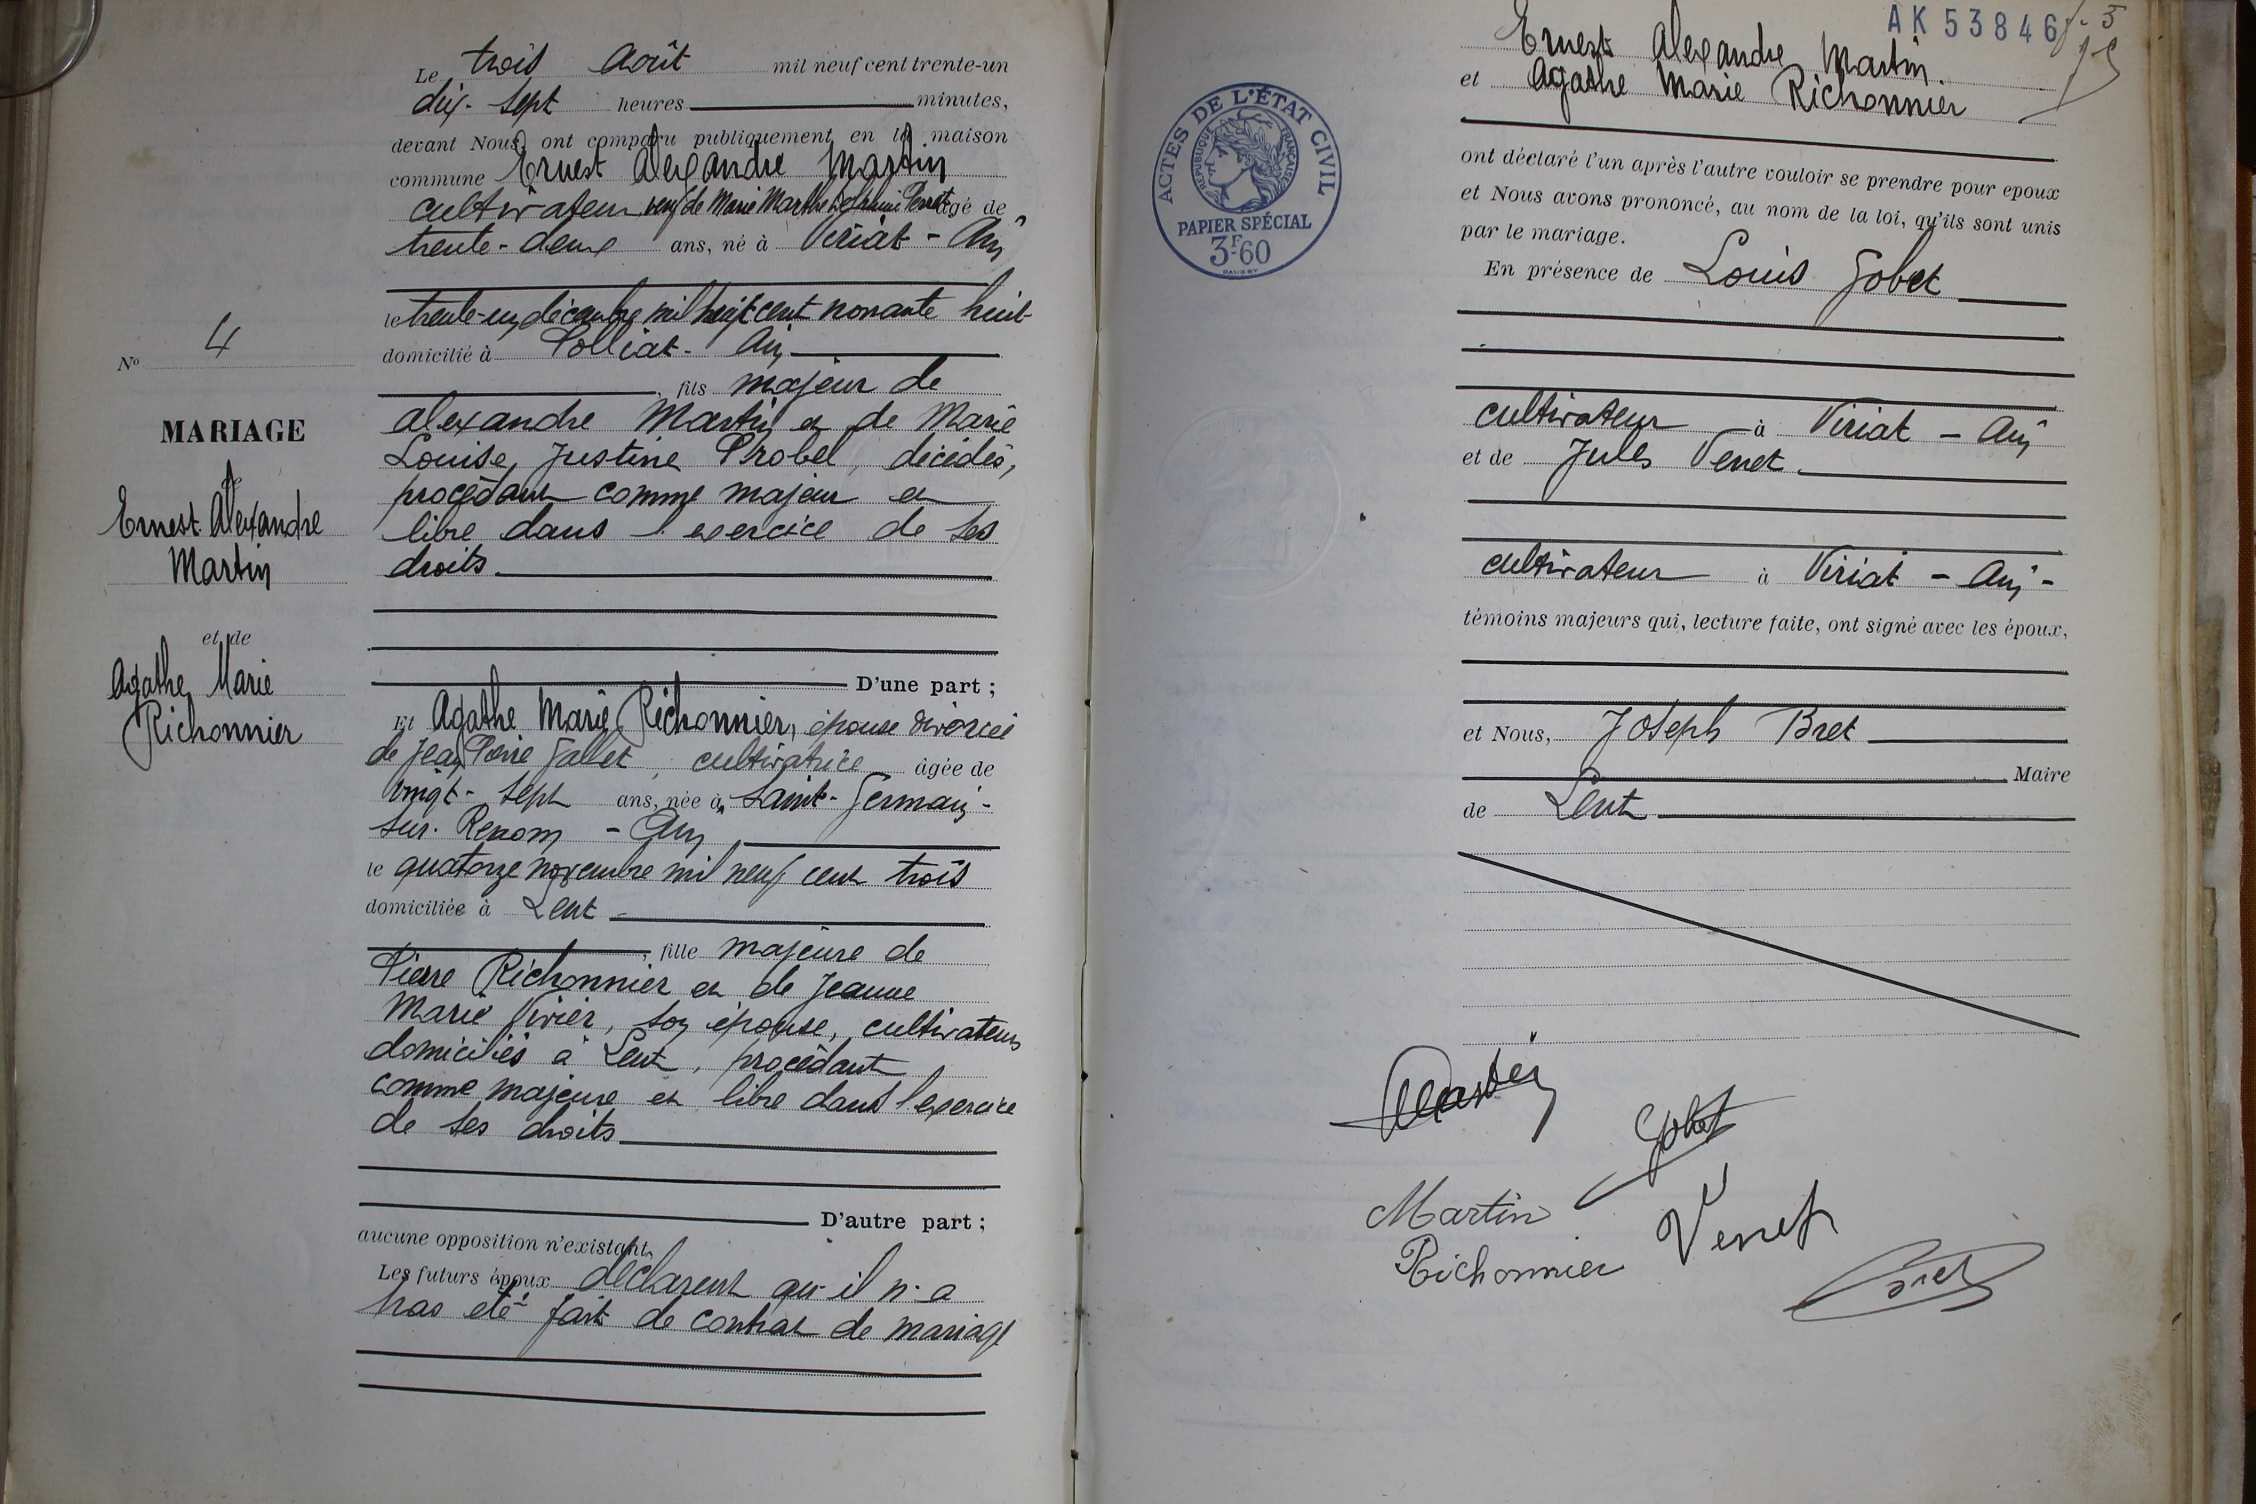 N° 4
MARIAGE
de
Ernest Alexandre
Martin
et de
Agathe Marie
Richonnier
Le trois Août mil neuf cent trente-un
dix-sept heures minutes,
devant Nous, ont comparu publiquement en la maison
commune Ernest Alexandre Martin
cultivateur veuf de Marie Marthe âgé de
trente-deux ans, né à Viriat - Ain
le trente-un décembre mil huit cent nonante huit
domicilié à Polliat - Ain
, fils majeur de
Alexandre Martin et de Marie
Louise, Justine Probel, décédés,
procédant comme majeur et
libre dans l'exercice de ses
droits.
D'une part ;
Et Agathe Marie Richonnier, épouse divorcée
de Jean Pierre Gallet, cultivatrice âgée de
vingt-sept ans, née à Saint-Germain-
sur-Renom - Ain
le quatorze novembre mil neuf cent trois
domiciliée à Lent
, fille majeure de
Pierre Richonnier et de Jeanne
Marie Vivier, son épouse, cultivateurs
domiciliés à Lent, procédant
comme majeure et libre dans l'exercice
de ses droits
D'autre part ;
aucune opposition n'existant,
Les futurs époux déclarent qu'il n'a
pas été fait de contrat de mariage
AK 53846
Ernest Alexandre Martin.
et Agathe Marie Richonnier
ACTES DE L'ÉTAT CIVIL
RÉPUBLIQUE FRANÇAISE
PAPIER SPÉCIAL
3F.60
ont déclaré l'un après l'autre vouloir se prendre pour époux
et Nous avons prononcé, au nom de la loi, qu'ils sont unis
par le mariage.
En présence de Louis Gobet
cultivateur à Viriat - Ain
et de Jules Venet
cultivateur à Viriat - Ain -
témoins majeurs qui, lecture faite, ont signé avec les époux,
et Nous, Joseph Bret
Maire
de Lent
Martin
Gobet
Martin
Richonnier
Venet
Bret